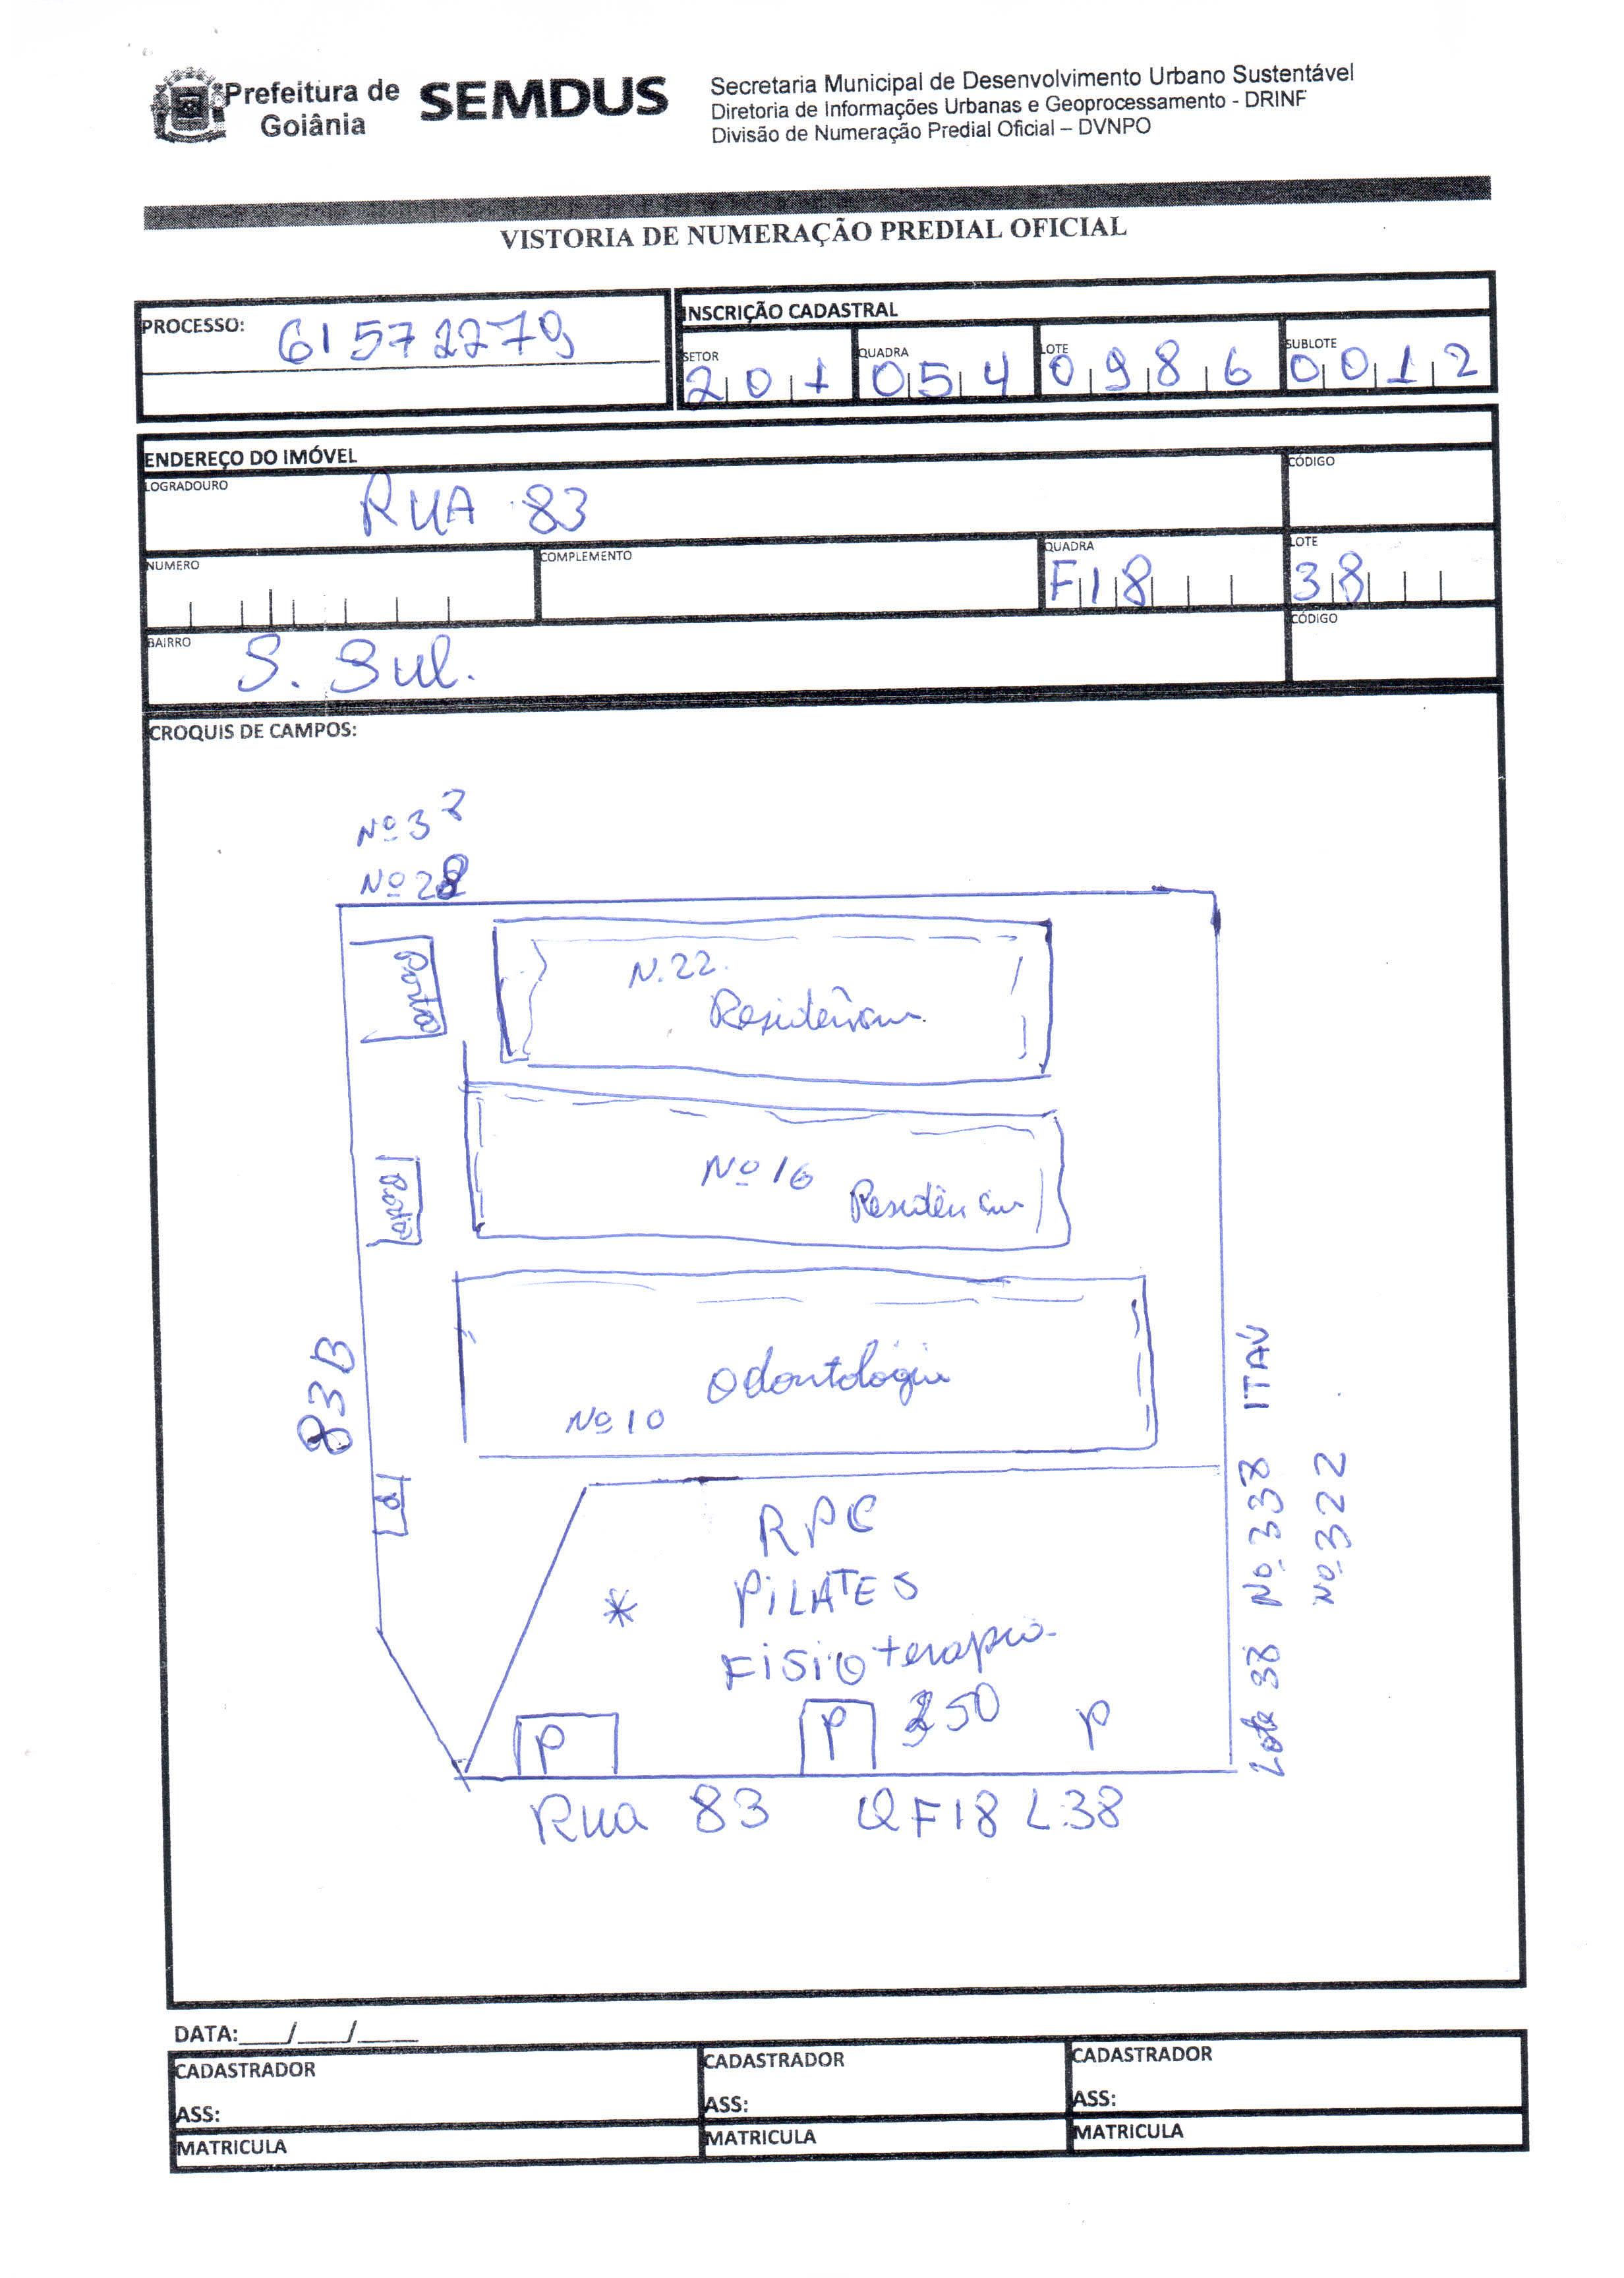 Prefeitura de
Goiânia
SEMDUS
Secretaria Municipal de Desenvolvimento Urbano Sustentável
Diretoria de Informações Urbanas e Geoprocessamento - DRINF
Divisão de Numeração Predial Oficial – DVNPO
VISTORIA DE NUMERAÇÃO PREDIAL OFICIAL
PROCESSO: 61572279
INSCRIÇÃO CADASTRAL
SETOR QUADRA LOTE SUBLOTE
201 054 0986 0012
ENDEREÇO DO IMÓVEL
LOGRADOURO RUA 83 CÓDIGO
NUMERO COMPLEMENTO QUADRA F18 LOTE 38
BAIRRO S. Sul. CÓDIGO
CROQUIS DE CAMPOS:
Nº 3
Nº 28
Portão
N. 22.
Residência
Portão
Nº 16
Residência
83B
Odontologia
Nº 10
RPC
* PILATES
Fisioterapia
P P 350 P
Rua 83 QF18 L38
Lote 38 Nº 338 ITAÚ
Nº 322
DATA:___/___/____
CADASTRADOR CADASTRADOR CADASTRADOR
ASS: ASS: ASS:
MATRICULA MATRICULA MATRICULA